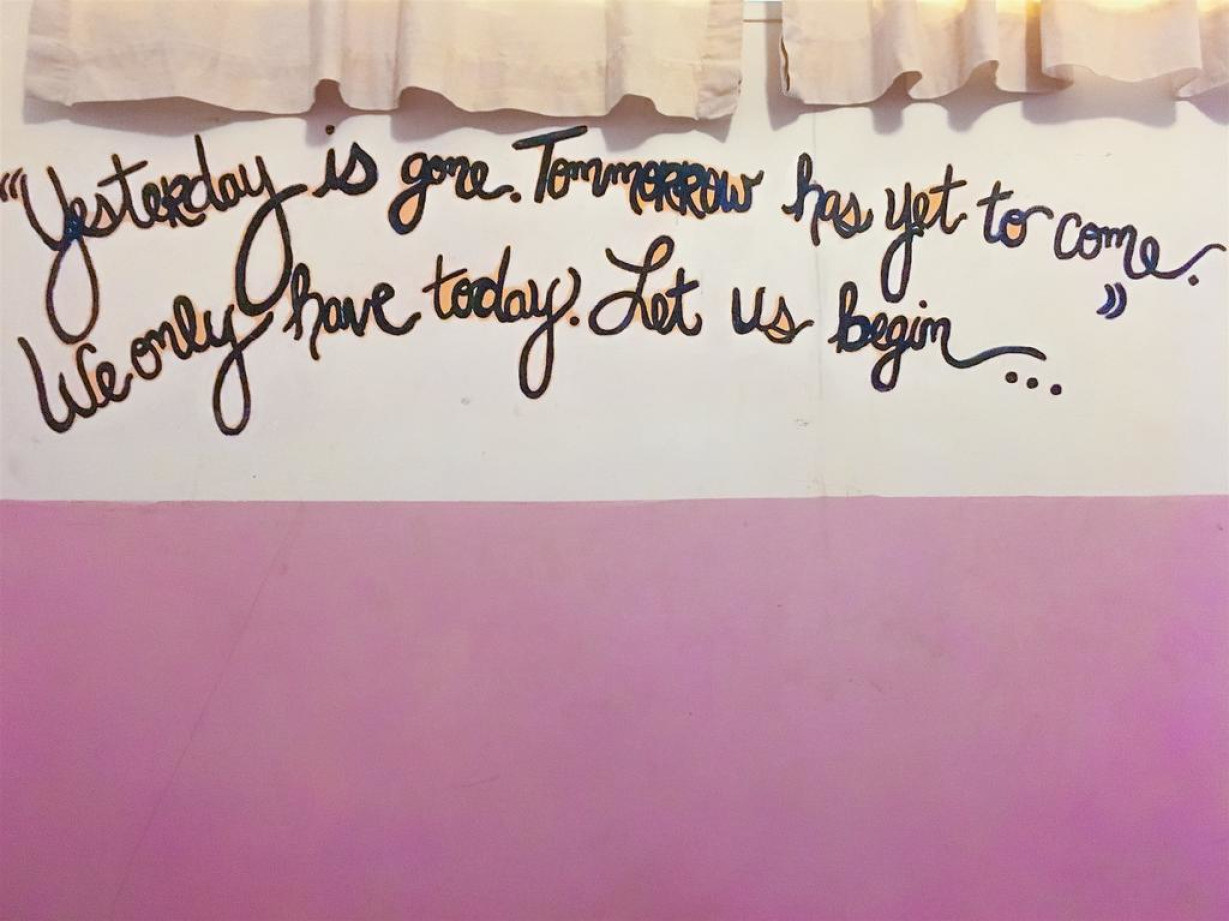 "Yesterday is gone. Tommorrow has yet to come.
We only have today. Let us begin... "